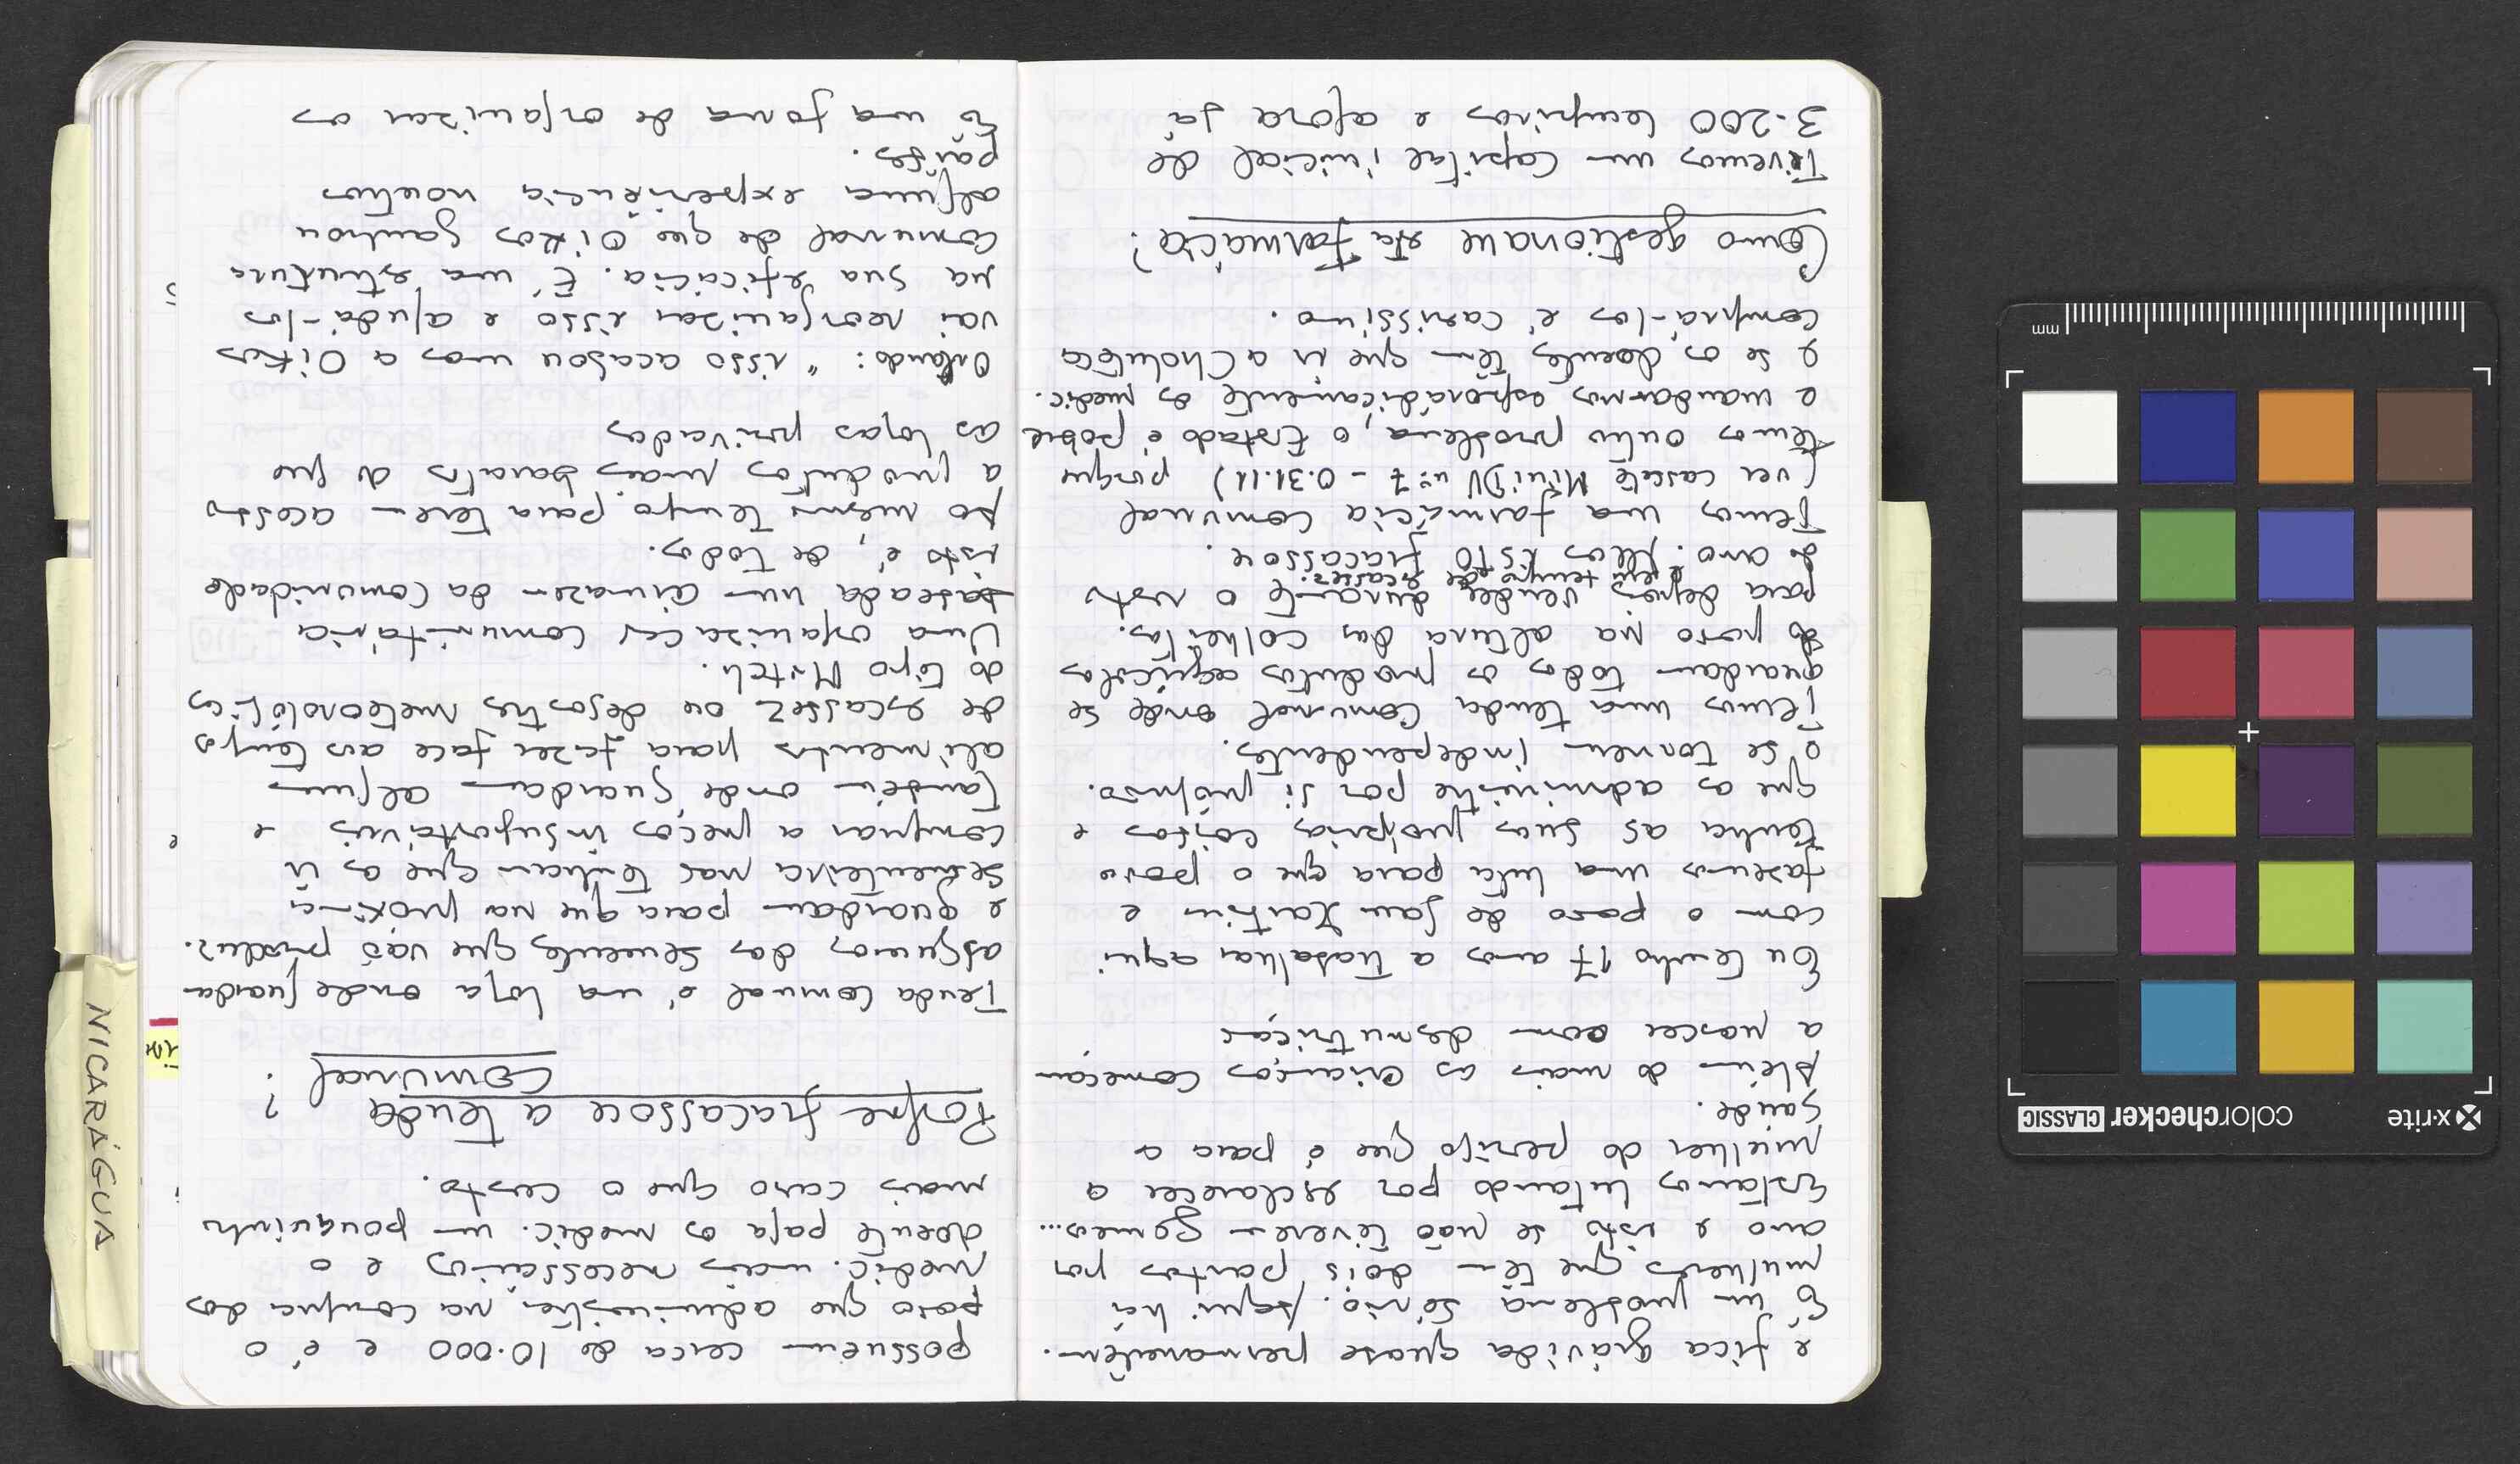 e fica grávida quase permanentem.
É um problema sério. Aqui há
mulheres que têm dois partos por
ano e isto se não tiverem gémeos...
Estamos lutando por esclarecer a
mulher do perigo que é para a
saúde.
Além do mais as crianças começam
a nascer com desnutrição
Eu tenho 17 anos a trabalhar aqui
com o povo de San Martin e
fazemos uma luta para que o povo
tenha as suas próprias coisas e
que as administre por si próprio.
e se tornem independentes.
Temos uma tenda comunal onde se
guardam todos os produtos agrícolas
do povo na altura das colheitas.
para depois vender durante o resto
em tempo de escassez.
do ano. Mas isto fracassou.
Temos uma farmácia comunal
(ver cassete MiniDV nº 7 - 0.31.11) porque
temos outro problema, o Estado é pobre
e mandar-nos esporádicamente os medic.
e se os doentes têm que ir a Choluteca
comprá-los é caríssimo.
Como gestionam esta Farmácia?
Tivemos um capital inicial de
3.200 lempiras e agora já
possuem cerca de 10.000 e é o
povo que administra, na compra dos
medic. mais necessários e o
doente paga os medic. um pouquinho
mais caro que o custo.
Porque fracassou a tenda
comunal?
Tenda comunal é uma loja onde guardam
algumas das sementes que vão produz.
e guardam para que na próxima
sementeira nao tenham que as ir
comprar a preços insuportáveis e
também onde guardam alguns
alimentos para fazer face aos tempos
de escassez ou desastres meteorológicos
do tipo Mitch.
Uma organização comunitária
baseada num armazém da comunidade
isto é, de todos.
Ao mesmo tempo para terem acesso
a produtos mais baratos do que
as lojas privadas
Orlando: "isso acabou mas a Oikos
vai reorganizar isso e ajudá-los
na sua eficácia. É uma estrutura
comunal de que Oikos ganhou
alguma experiência noutros
países.
É uma forma de organizar os
NICARÁGUA
x-rite
colorchecker CLASSIC
mm